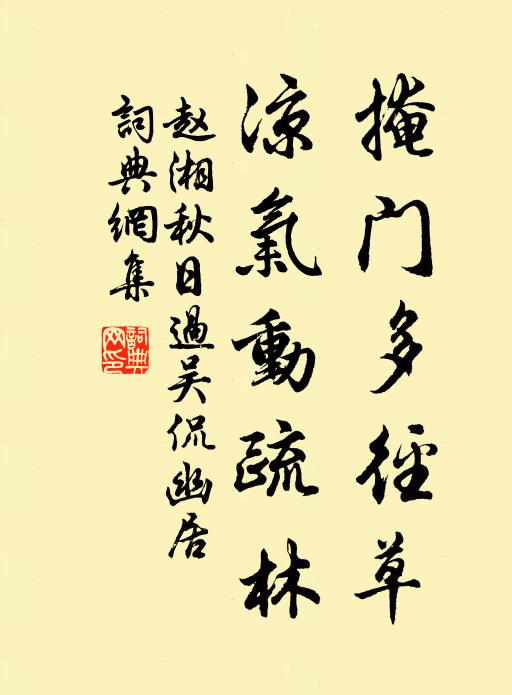 掩门多径草
凉气動疏林
赵湘秋日過吴侃幽居
詞典網集
詞典
网印